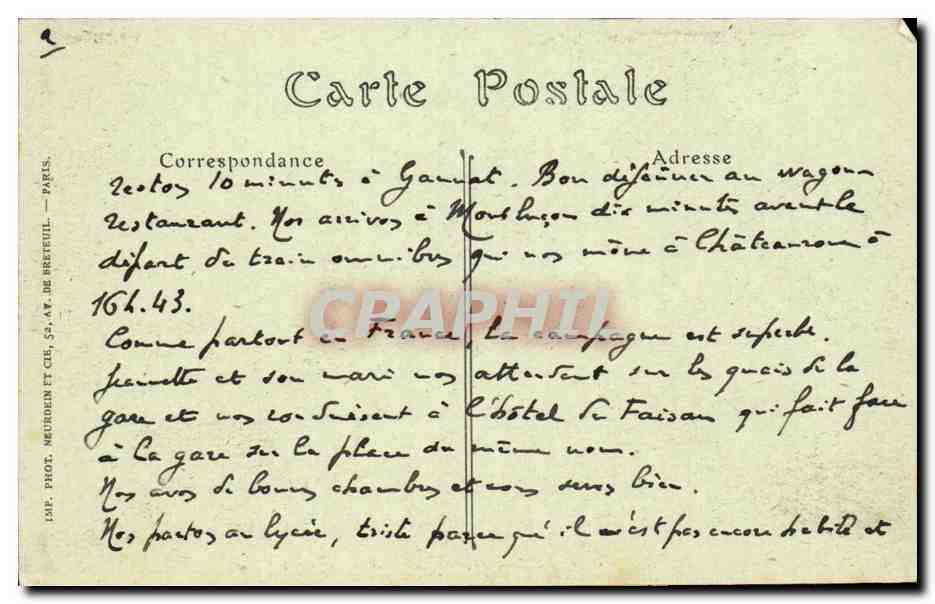 a
Carte Postale
Correspondance
Adresse
restons 10 minutes à Gannat. Bon déjeûner au wagon
restaurant. Nos arrivons à Montluçon dix minutes avant le
départ du train omnibus qui nos mène à Châteauroux à
16h.43.
CPAPHIL
Comme partout en France, la campagne est superbe.
Jeannette et son mari nos attendent sur les quais de la
gare et nos conduisent à l'hôtel du Faisan qui fait face
à la gare sur la place du même nom.
Nos avos de bonnes chambres et nous seros bien.
Nos partos au lycée, triste parce qu'il n'est pas encore habité et
IMP. PHOT. NEURDEIN ET CIE, 52, AV. DE BRETEUIL. — PARIS.